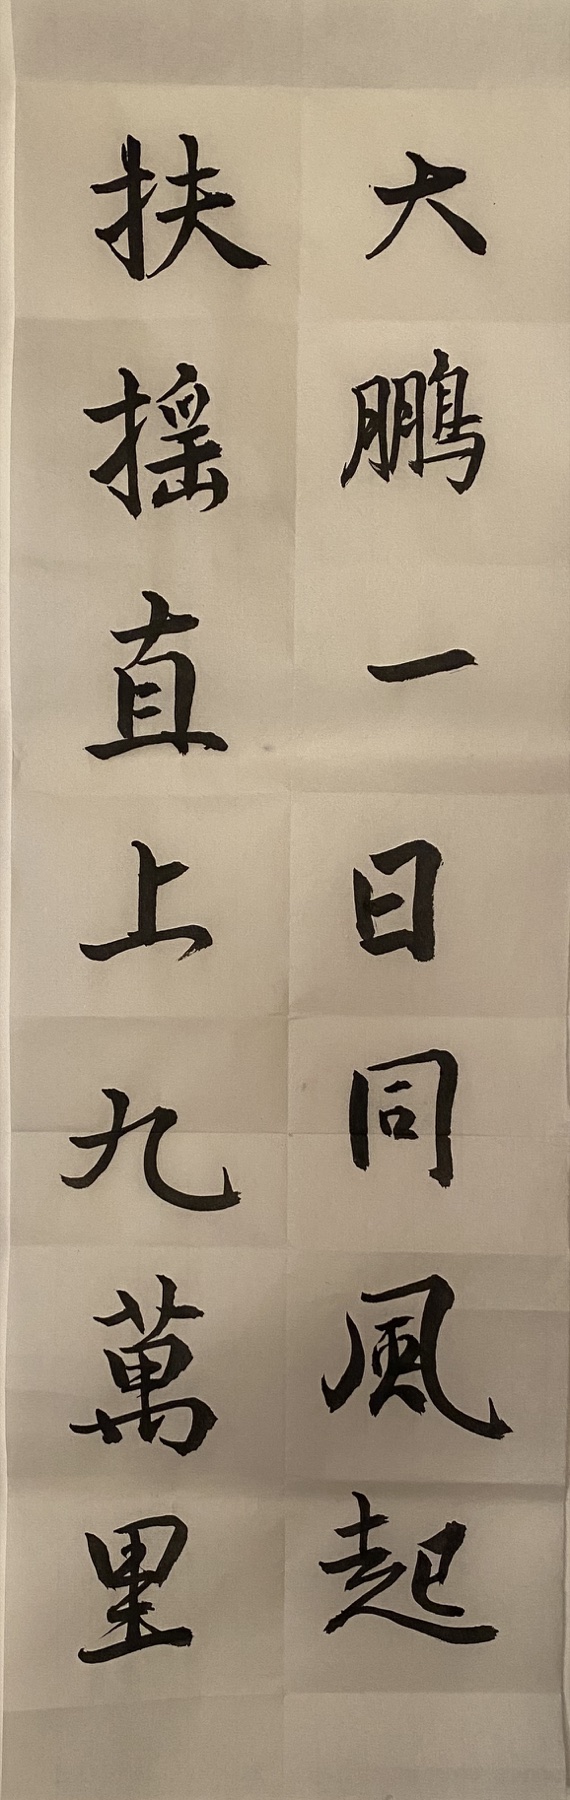 大鵬一日同風起
扶摇直上九萬里